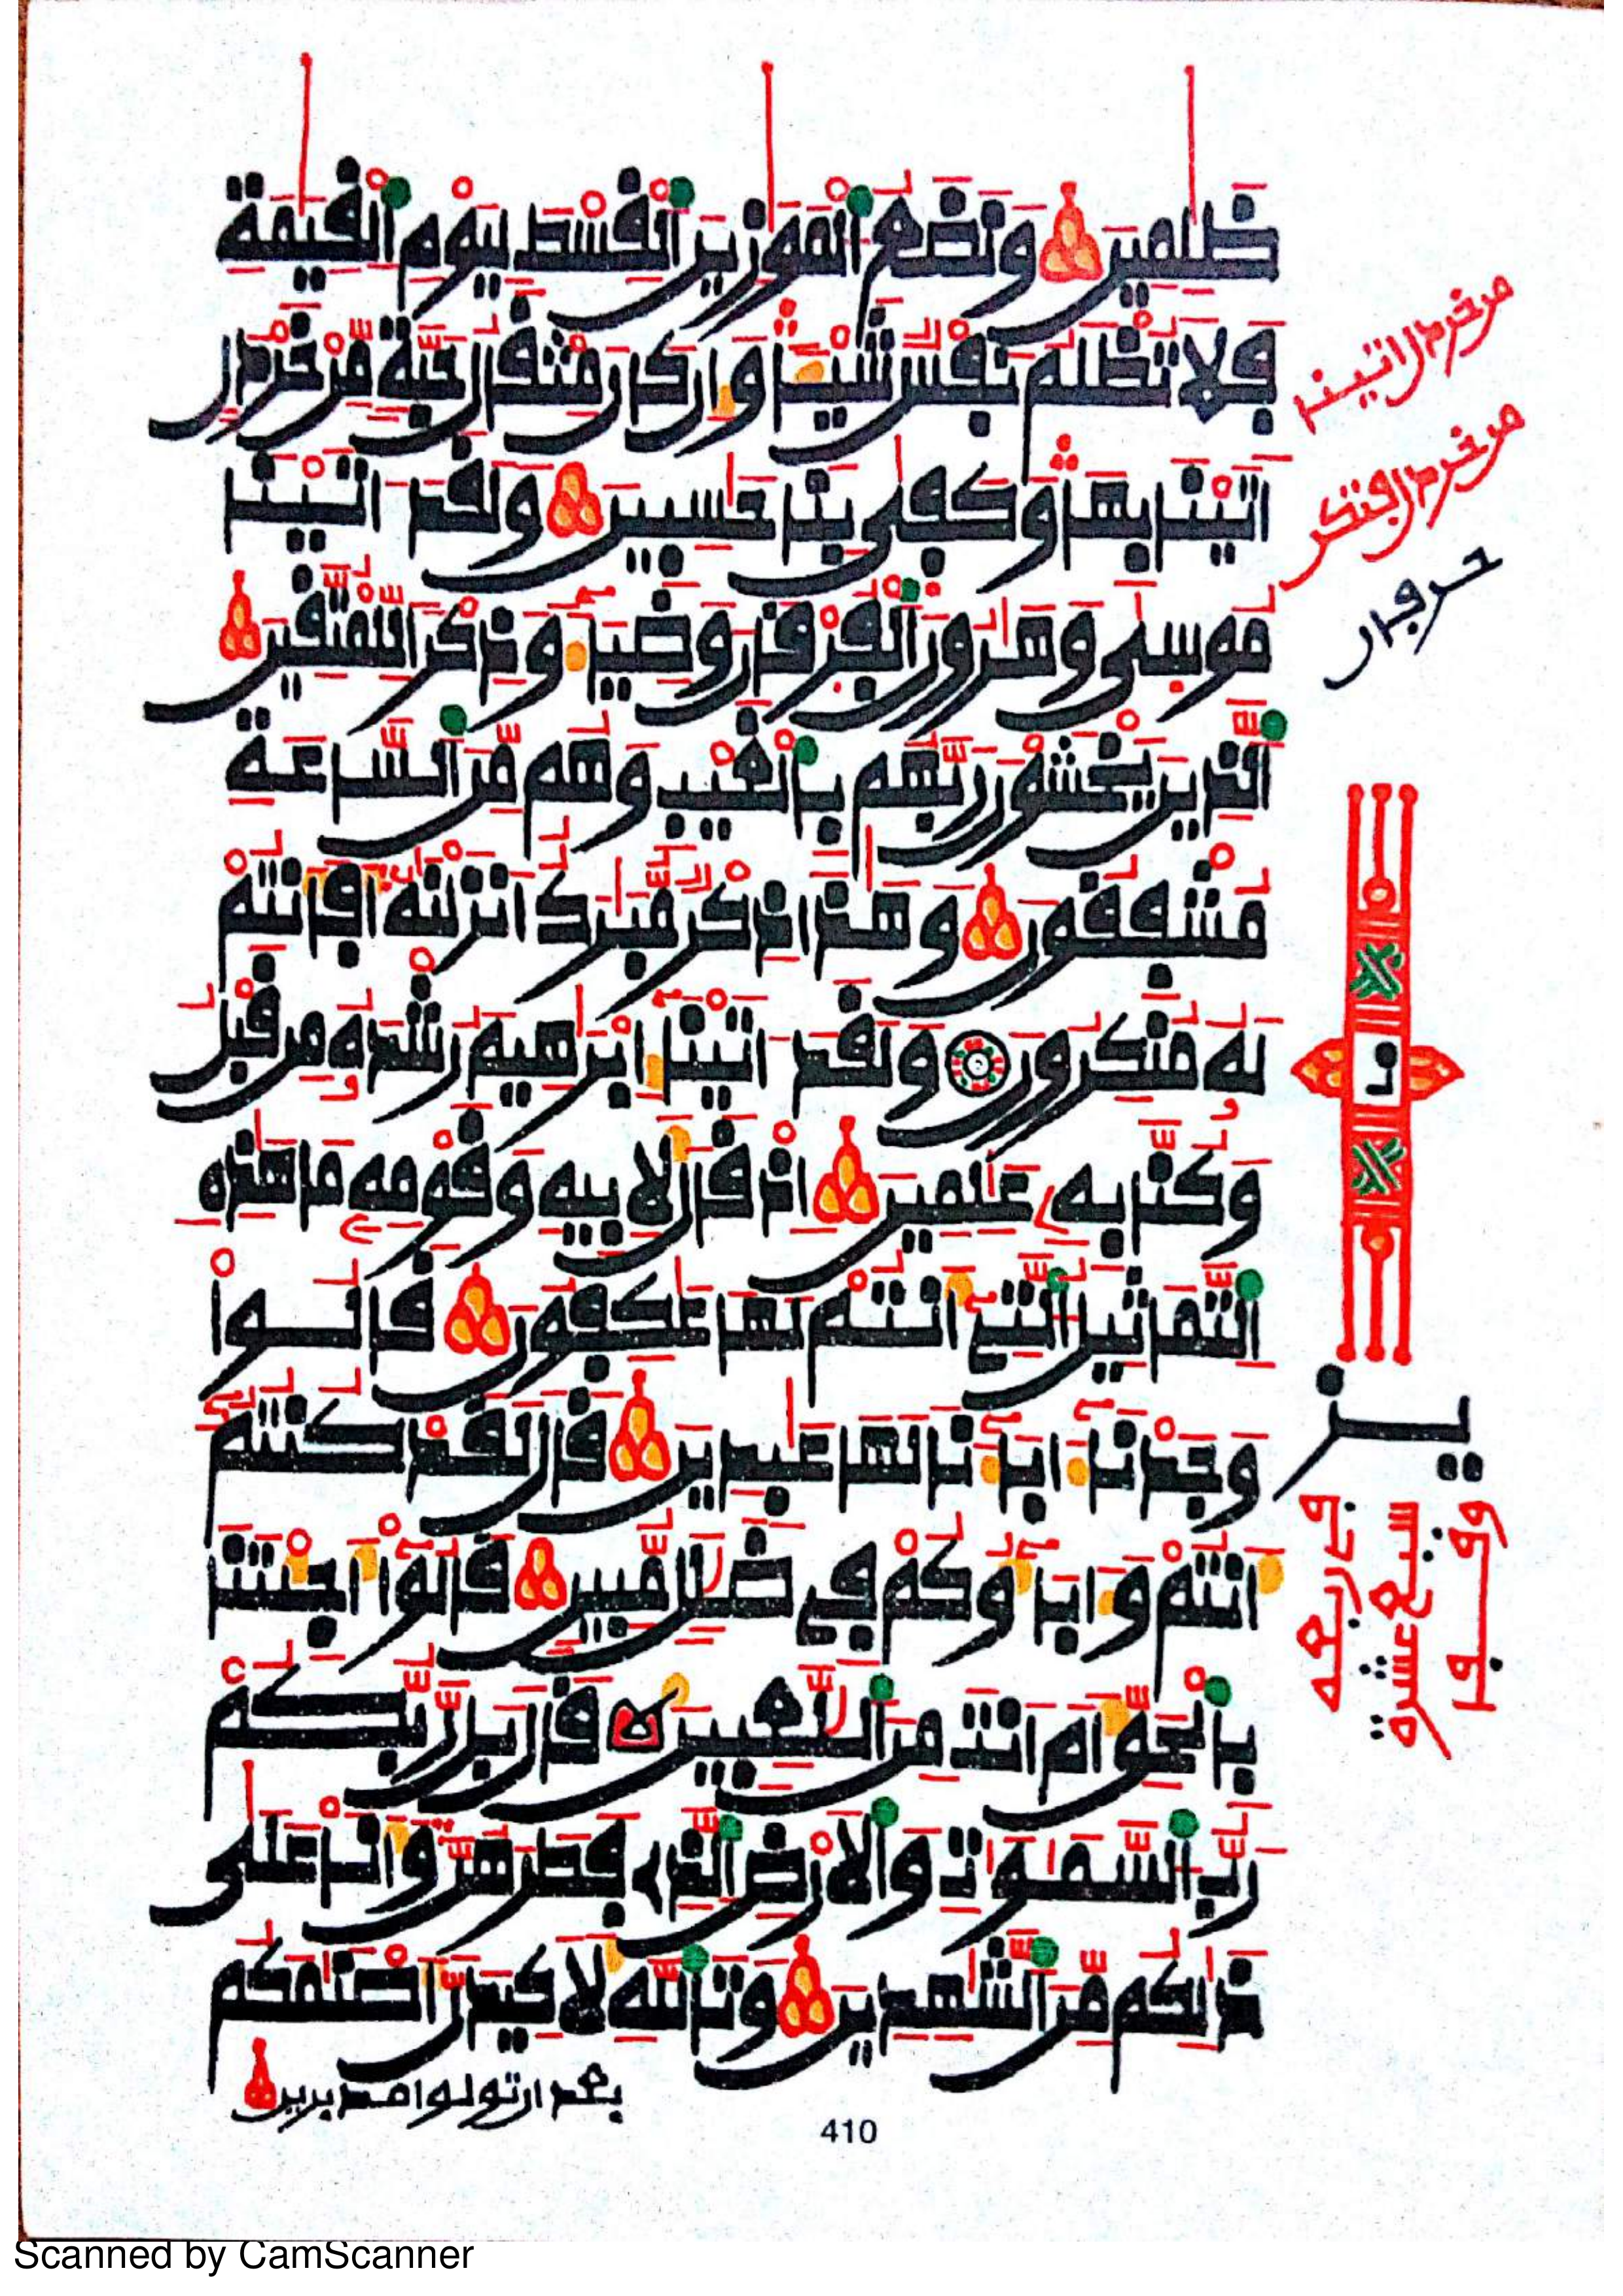 ظلمين ونضع الموزين القسط ليوم القيمة
فلا تظلم نفس شيا وان كان مثقال حبة من خردل
اتينا بها وكفى بنا حسبين ولقد اتينا
موسى وهرون الفرقان وضياء وذكرا للمتقين
الذين يخشون ربهم بالغيب وهم من الساعة
مشفقون وهذا ذكر مبرك انزلنه افانتم
له منكرون ولقد اتينا ابرهيم رشده من قبل
وكنا به علمين اذ قال لابيه وقومه ما هذه
التماثيل التي انتم لها عكفون قالوا
وجدنا اباءنا لها عبدين قال لقد كنتم
انتم واباؤكم في ضلل مبين قالوا اجئتنا
بالحق ام انت من اللعبين قال بل ربكم
رب السموات والارض الذي فطرهن وانا على
ذالكم من الشهدين وتالله لاكيدن اصنمكم
بعد ان تولوا مدبرين
من خردل اتينا
يز
سبع عشرة
410
Scanned by CamScanner